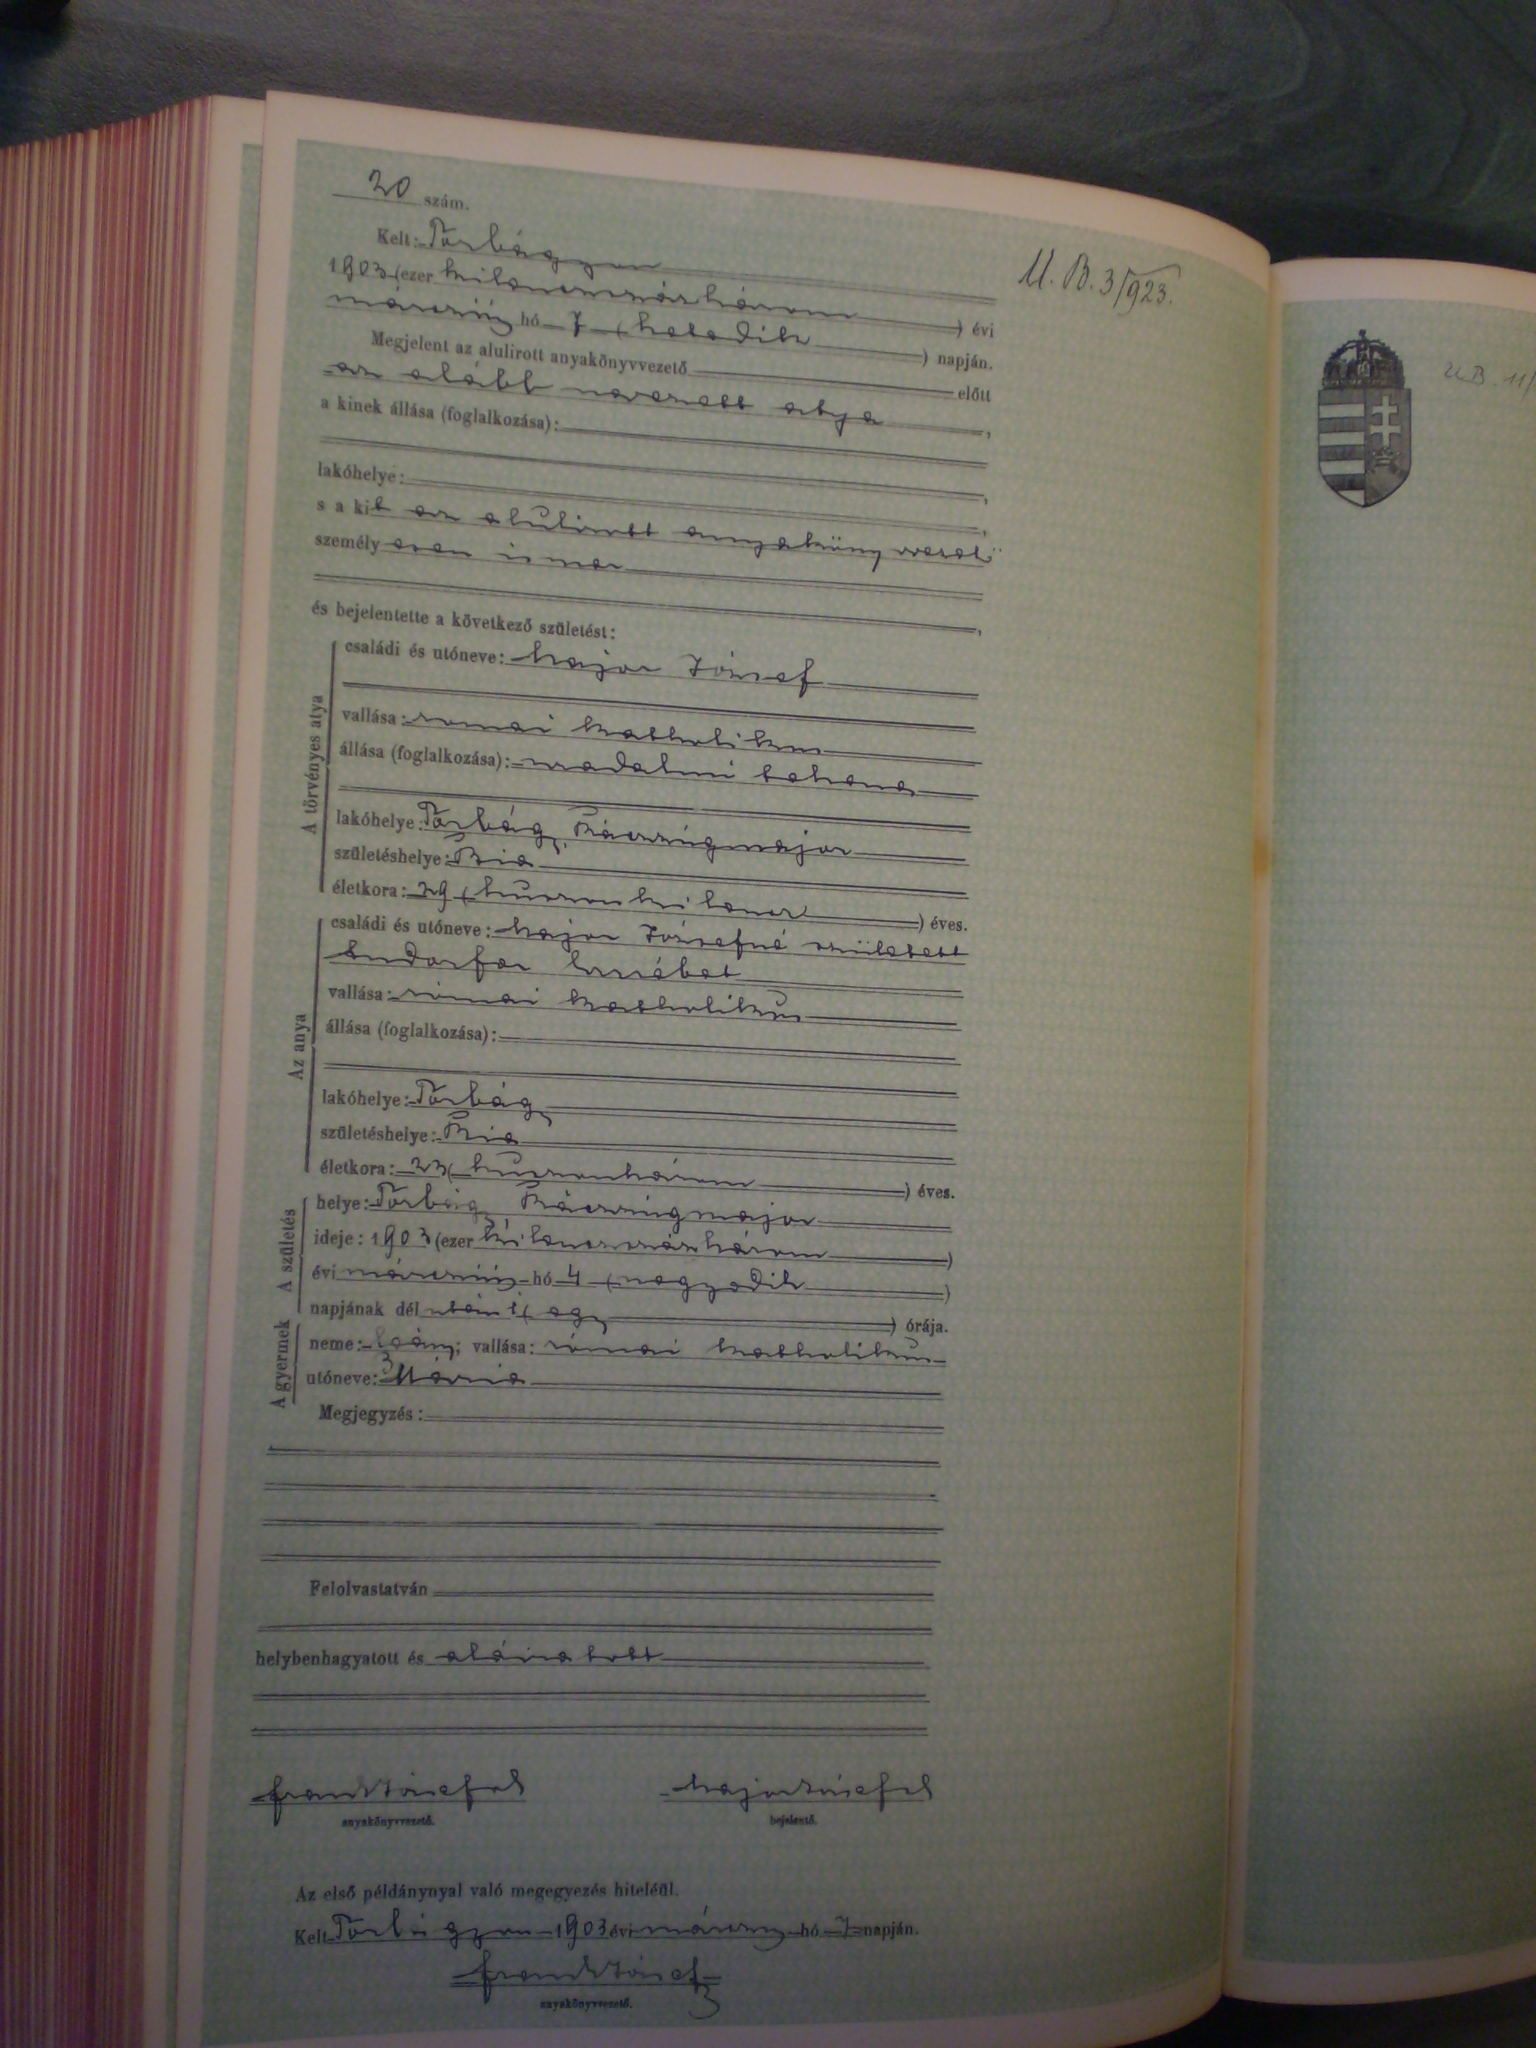 20 szám.
Kelt: Torbágyon
U. B. 3/923.
1903 (ezer kilenczszázhárom ) évi
márczius hó 7 (hetedik ) napján.
Megjelent az alulirott anyakönyvvezető előtt
az alább nevezett atya ,
a kinek állása (foglalkozása):
lakóhelye: ,
s a kit az alulirott anyakönyvvezető
személyesen ismer
és bejelentette a következő születést:
A törvényes atya
családi és utóneve: Major József
vallása: római katholikus
állása (foglalkozása): uradalmi
lakóhelye: Torbágy,
születéshelye: Bia
életkora: 29 (huszonkilencz ) éves.
Az anya
családi és utóneve: Major Józsefné született
Erzsébet
vallása: római katholikus
állása (foglalkozása):
lakóhelye: Torbágy
születéshelye: Bia
életkora: 23 (huszonhárom ) éves.
A születés
helye: Torbágy,
ideje: 1903 (ezer kilenczszázhárom )
évi márczius hó 4 (negyedik )
napjának dél után 1 (egy ) órája.
A gyermek
neme: leány; vallása: római katholikus
utóneve: Mária
Megjegyzés:
Felolvastatván
helybenhagyatott és aláiratott
Frank József s k Major József s k
anyakönyvvezető. bejelentő.
Az első példánynyal való megegyezés hiteléül.
Kelt Torbágyon 1903 évi márczius hó 7 napján.
Frank József
anyakönyvvezető.
U.B. 11/